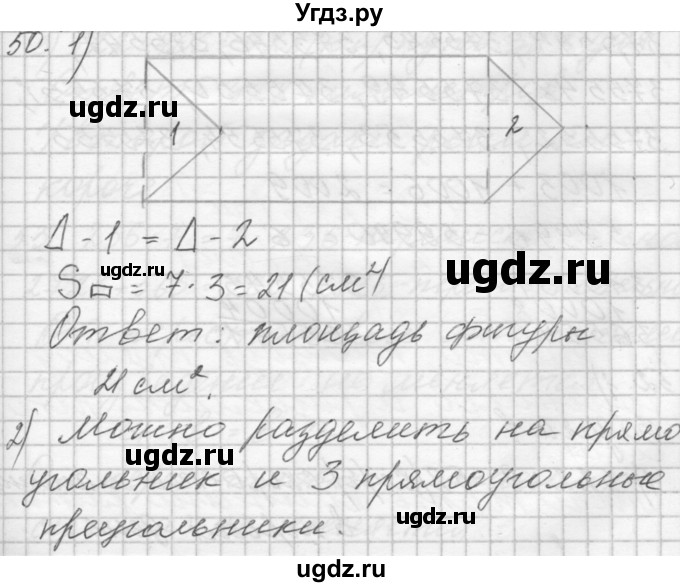 Угдз.ру
50. 1)
ugdz.ru
ugdz.ru
1
2
Δ - 1 = Δ - 2
ugdz.ru
ugdz.ru
S▭ = 7 · 3 = 21 (см²)
Ответ: площадь фигуры
21 см².
ugdz.ru
2) Можно разделить на прямо
ugdz.ru
угольник и 3 прямоугольные
ugdz.ru
преугольники.
ugdz.ru